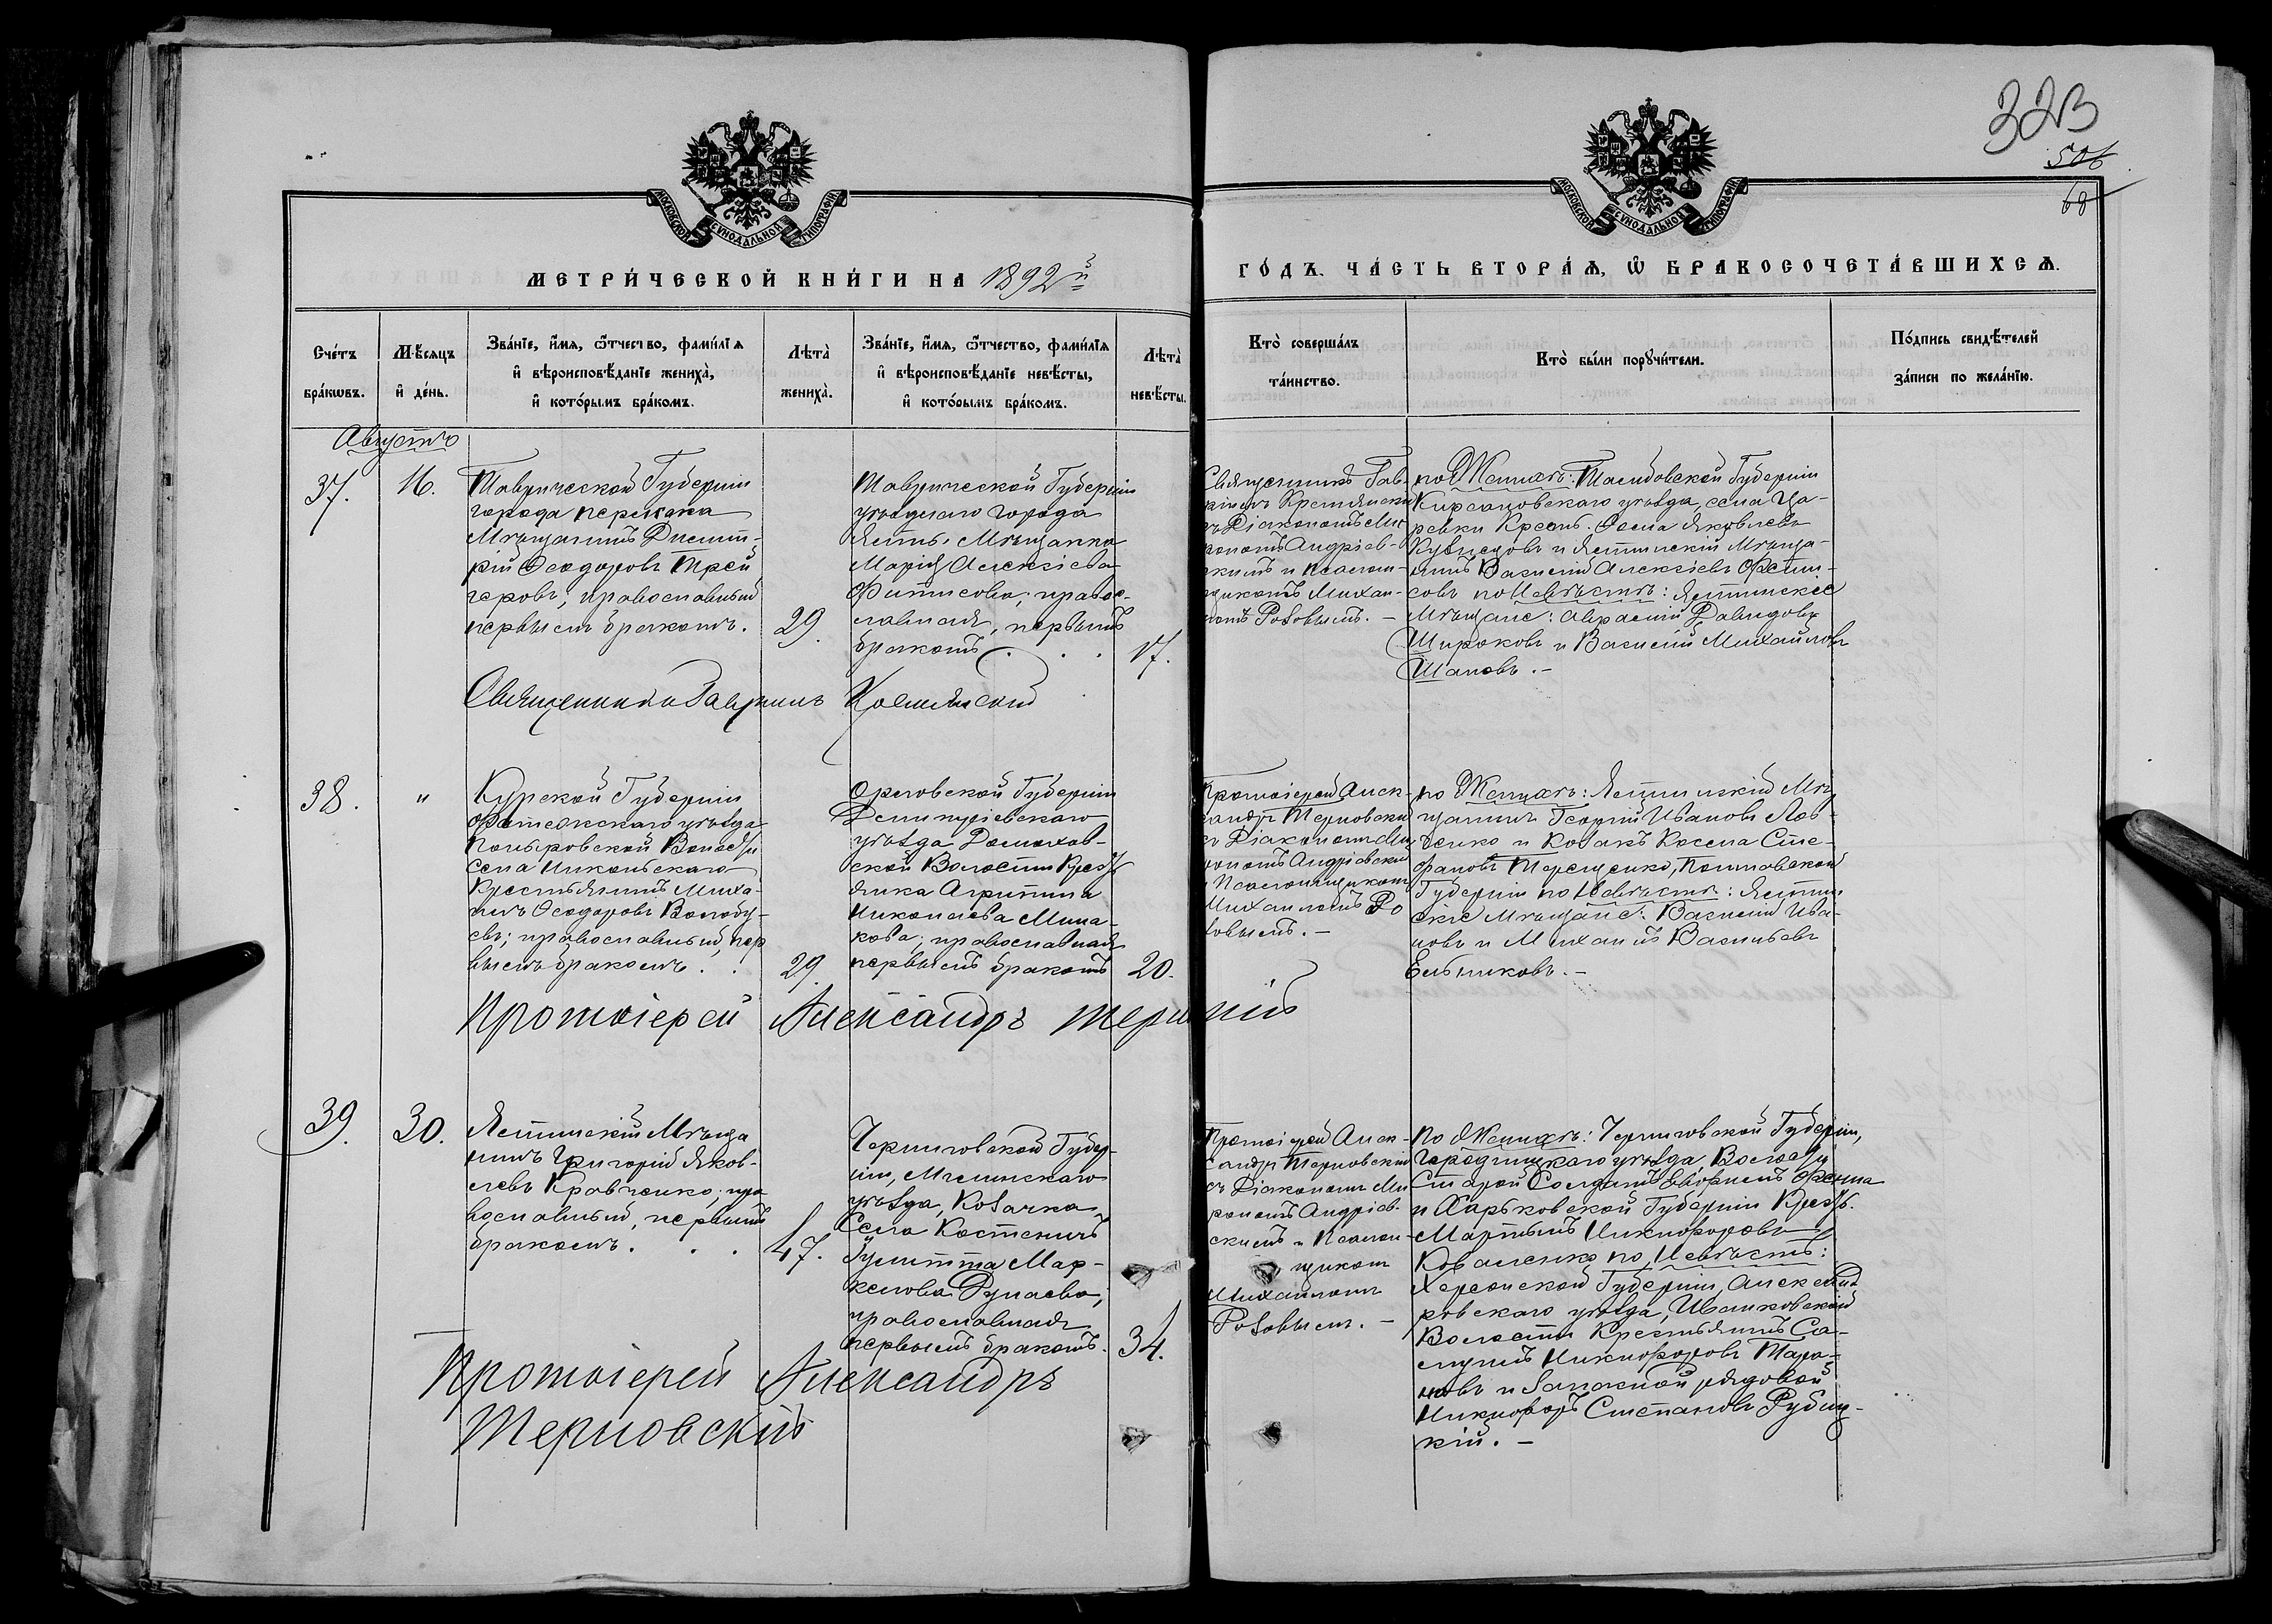 323
506
68
МОСКОВСКОЙ СѴНОДАЛЬНОЙ ТИПОГРАФІИ
МОСКОВСКОЙ СѴНОДАЛЬНОЙ ТИПОГРАФІИ
МЕТРИ́ЧЕСКОЙ КНИ́ГИ НА 1892й
ГО́ДЪ. ЧА́СТЬ ВТОРА́Ѧ, Ѽ БРАКОСОЧЕТА́ВШИХСѦ.
Сче́тъ
бра́кѡвъ.
Мѣ́сѧцъ
и҆ де́нь.
Зва́нїе, и҆́мѧ, ѻ҆́тчество, фами́лїѧ
и҆ вѣроисповѣ́данїе жениха̀,
и҆ кото́рымъ бра́комъ.
Лѣта̀
жениха̀.
Зва́нїе, и҆́мѧ, ѻ҆́тчество, фами́лїѧ
и҆ вѣроисповѣ́данїе невѣ́сты,
и҆ кото́рымъ бра́комъ.
Лѣта̀
невѣ́сты.
Кто̀ соверша́лъ
та́инство.
Кто̀ бы́ли порꙋчи́тели.
По́дпись свидѣ́телей
за́писи по жела́нїю.
Августъ
37.
16.
Таврической Губерніи
города Перекопа
Мѣщанинъ Димит-
рій Ѳеодоровъ Трей
геровъ; православный
первымъ бракомъ.
29.
Таврической Губерніи
уѣзднаго города
Ялты, Мѣщанка
Марія Алексіева
Фитисова; правос-
лавная, первымъ
бракомъ . . .
17.
Священникъ Гав-
ріилъ Кремянски
съ Діакономъ Ми
рономъ Андріев-
скимъ и Псалом-
щикомъ Михаи-
ломъ Розовымъ. –
по Женихѣ: Тамбовской Губерніи
Кирсановскаго уѣзда, села Ца-
ревки Крест. Ѳома Яковлевъ
Кузнецовъ и Ялтинскій Мѣща-
нинъ Василій Алексіевъ Фети-
совъ по Невѣстѣ: Ялтинскіе
Мѣщане: Аврамій Давидовъ
Широковъ и Василій Михайловъ
Шаповъ. –
Священникъ Гавріилъ Кремянскій
38.
"
Курской Губерніи
Фатежскаго уѣзда
Поныровской Волости
села Никольскаго
Крестьянинъ Миха-
илъ Ѳеодоровъ Волобу-
евъ; православный, пер
вымъ бракомъ . .
29.
Орловской Губерніи
Димитріевскаго
уѣзда Домахов-
ской Волости Крест
янка Агрипина
Николаева Мина-
кова; православная
первымъ бракомъ
20.
Протоіерей Алек-
сандръ Терновски
съ Діакономъ Ми
рономъ Андріевским
и Псаломщикомъ
Михаиломъ Ро
зовымъ. –
по Женихѣ: Ялтинскій Мѣ
щанинъ Георгій Ивановъ Лов-
ченко и Козакъ Косма Сте-
фановъ Терещенко, Полтавской
Губерніи по Невѣстѣ: Ялтин-
скіе Мѣщане: Василій Ива-
новъ и Михаилъ Васильевъ
Ельниковъ. –
Протоіерей Александръ
39.
30.
Ялтинскій Мѣща
нинъ Григорій Яков-
левъ Кравченко; пра
вославный, первымъ
бракомъ . . .
47.
Черниговской Губер-
ніи, Мглинскаго
уѣзда, Козачка
Села Костеничъ
Гулитта Мар-
келова Дунаева;
православная
первымъ бракомъ.
34.
Протоіерей Алек-
сандръ Терновскій
съ Діакономъ Ми
рономъ Андріев-
скимъ и Псалом-
щиком
Михаиломъ
Розовымъ. –
По Женихѣ: Черниговской Губерніи,
Городницкаго уѣзда, Волости
Старой
и Харьковской Губерніи Крест.
Мартынъ Никифоровъ
Коваленко по Невѣстѣ:
Херсонской Губерніи, Александ
ровскаго уѣзда, Иванковской
Волости Крестьянинъ Са-
муилъ Никифоровъ Тара-
новъ и Запасной рядовой
Никифоръ Степановъ Рубиц-
кій. –
Протоіерей Александръ
Терновскій